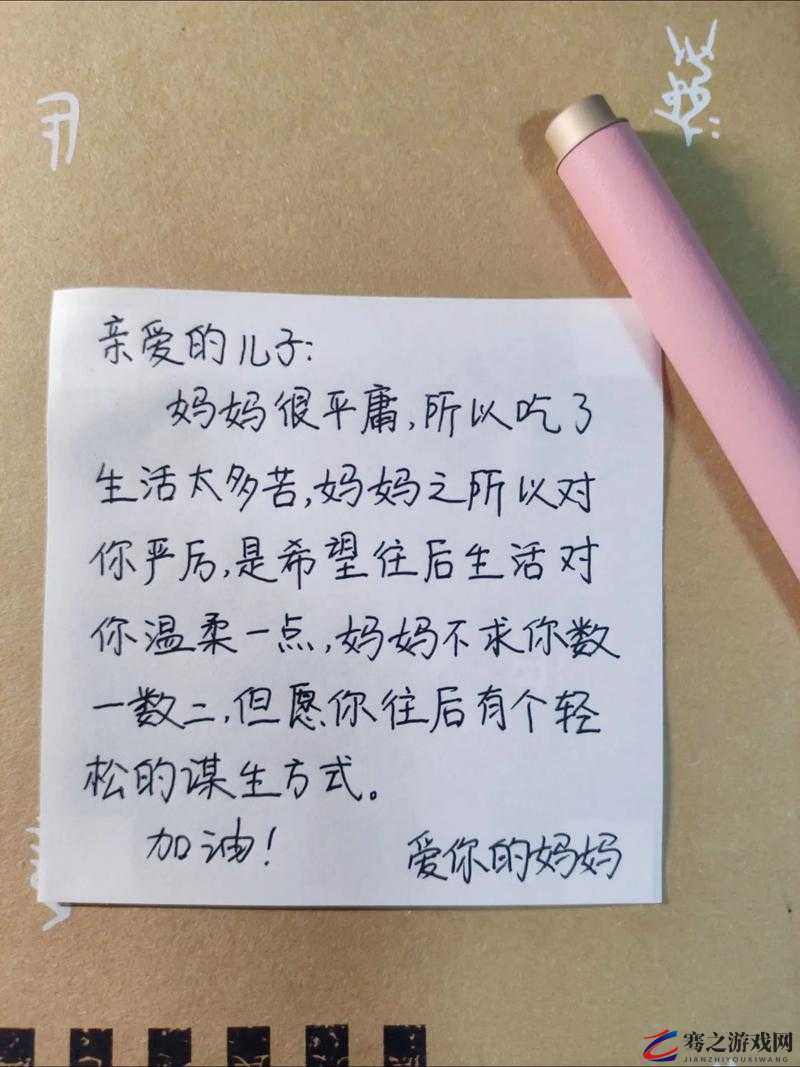 亲爱的儿子:
妈妈很平庸,所以吃了
生活太多苦,妈妈之所以对
你严厉,是希望往后生活对
你温柔一点,妈妈不求你数
一数二,但愿你往后有个轻
松的谋生方式。
加油!
爱你的妈妈
骞之游戏网
JIANZHIYOUXIWANG